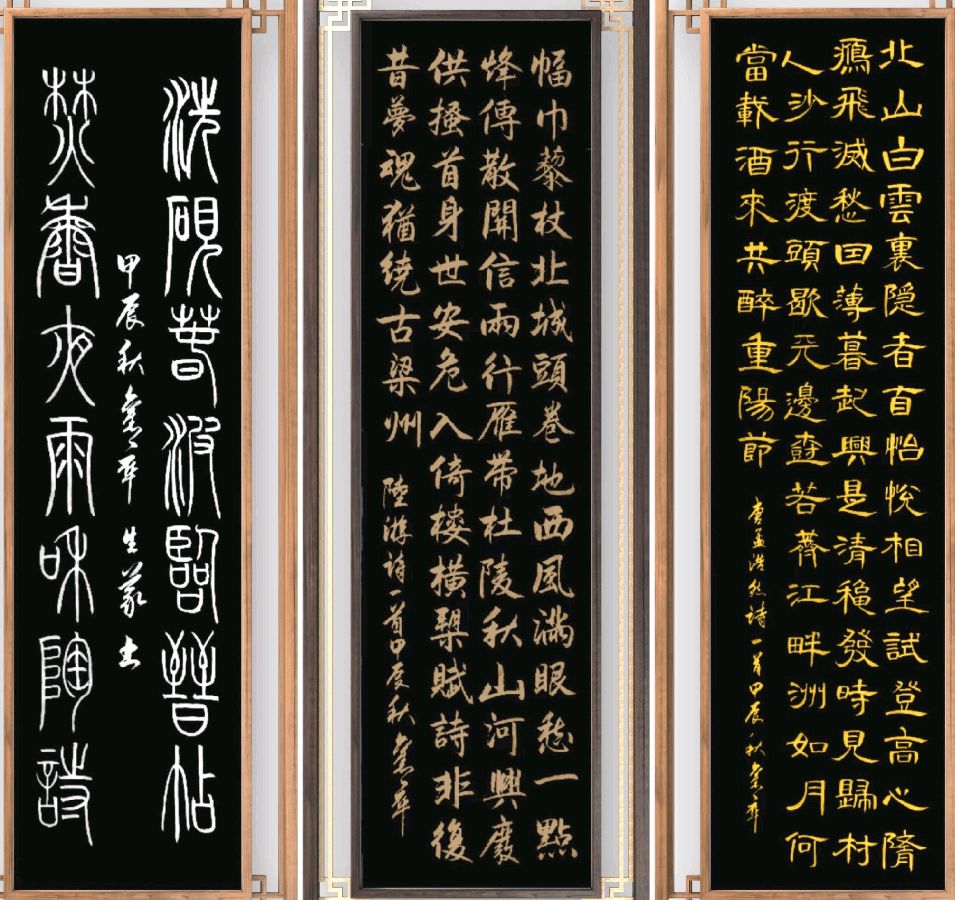 北山白雲裏隱者自怡悅相望試登高心隨
鴈飛滅愁因薄暮起興是清穐發時見歸村
人沙行渡頭歇天邊樹若薺江畔洲如月何
當載酒來共醉重陽節
唐孟浩然詩一首甲辰秋
幅巾藜杖北城頭卷地西風滿眼愁一點
烽傳散關信兩行雁帶杜陵秋山河興廢
供搔首身世安危入倚樓橫槊賦詩非復
昔夢魂猶繞古梁州 陸游詩一首甲辰秋
洗硯春波臨晉帖
焚香夜雨和陶詩
甲辰秋